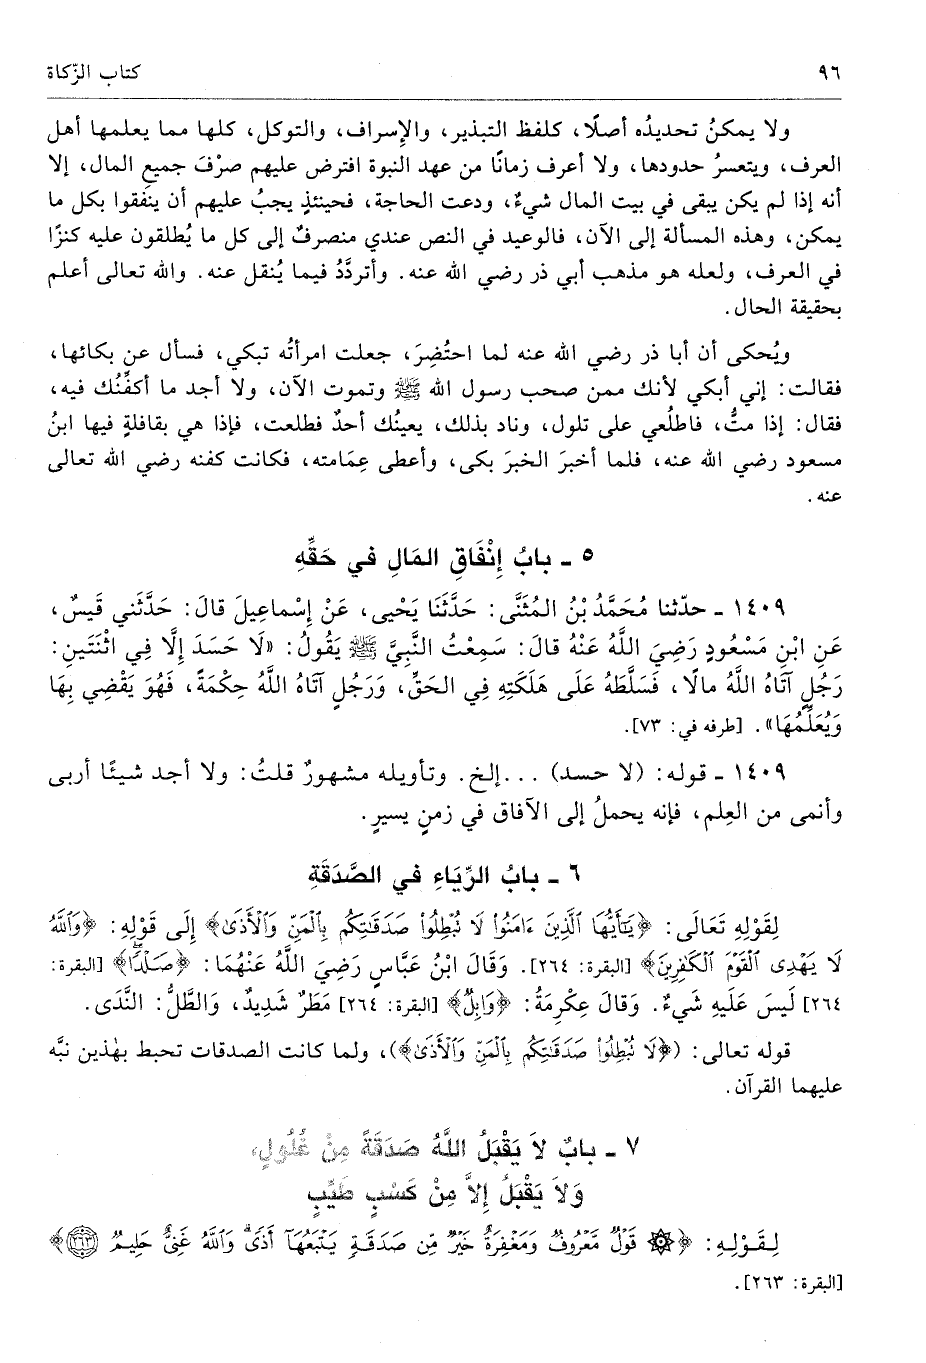 ٩٦ كتاب الزّكاة
ولا يمكنُ تحديدُه أصلًا، كلفظ التبذير، والإِسراف، والتوكل، كلها مما يعلمها أهل
العرف، ويتعسرُ حدودها، ولا أعرف زمانًا من عهد النبوة افترض عليهم صرْفَ جميعِ المال، إلا
أنه إذا لم يكن يبقى في بيت المال شيءٌ، ودعت الحاجة، فحينئذٍ يجبُ عليهم أن ينفقوا بكل ما
يمكن، وهذه المسألة إلى الآن، فالوعيد في النص عندي منصرفٌ إلى كل ما يُطلقون عليه كنزًا
في العرف، ولعله هو مذهب أبي ذر رضي الله عنه. وأتردَّدُ فيما يُنقل عنه. والله تعالى أعلم
بحقيقة الحال.
ويُحكى أن أبا ذر رضي الله عنه لما احتُضِرَ، جعلت امرأتُه تبكي، فسأل عن بكائها،
فقالت: إني أبكي لأنك ممن صحب رسول الله ﷺ وتموت الآن، ولا أجد ما أكفِّنُك فيه،
فقال: إذا متُّ، فاطلُعي على تلول، وناد بذلك، يعينُك أحدٌ فطلعت، فإذا هي بقافلةٍ فيها ابنُ
مسعود رضي الله عنه، فلما أخبرَ الخبرَ بكى، وأعطى عِمَامته، فكانت كفنه رضي الله تعالى
عنه.
٥ ـ بابُ إِنْفَاقِ المَالِ في حَقِّهِ
١٤٠٩ ـ حدّثنا مُحَمَّدُ بْنُ المُثَنَّى: حَدَّثَنَا يَحْيى، عَنْ إِسْماعِيلَ قالَ: حَدَّثَني قَيسٌ،
عَنِ ابْنِ مَسْعُودٍ رَضِيَ اللَّهُ عَنْهُ قالَ: سَمِعْتُ النَّبِيَّ ﷺ يَقُولُ: «لَا حَسَدَ إِلَّا فِي اثْنَتَينِ:
رَجُلٍ آتَاهُ اللَّهُ مالًا، فَسَلَّطَهُ عَلَى هَلَكَتِهِ فِي الحَقِّ، وَرَجُلٍ آتَاهُ اللَّهُ حِكْمَةً، فَهُوَ يَقْضِي بِهَا
وَيُعَلِّمُهَا». [طرفه في: ٧٣].
١٤٠٩ ـ قوله: (لا حسد) ...إلخ. وتأويله مشهورٌ قلتُ: ولا أجد شيئًا أربى
وأنمى من العِلم، فإنه يحملُ إلى الآفاق في زمنٍ يسيرٍ.
٦ ـ بابُ الرِّيَاءِ في الصَّدَقَةِ
لِقَوْلِهِ تَعَالَى: ﴿يَٰٓأَيُّهَا ٱلَّذِينَ ءَامَنُوا۟ لَا تُبْطِلُوا۟ صَدَقَٰتِكُم بِٱلْمَنِّ وَٱلْأَذَىٰ﴾ إِلَى قَوْلِهِ: ﴿وَٱللَّهُ
لَا يَهْدِى ٱلْقَوْمَ ٱلْكَٰفِرِينَ﴾ [البقرة: ٢٦٤]. وَقَالَ ابْنُ عَبَّاسٍ رَضِيَ اللَّهُ عَنْهُمَا: ﴿صَلْدًا﴾ [البقرة:
٢٦٤] لَيسَ عَلَيهِ شَيءٌ. وَقالَ عِكْرِمَةُ: ﴿وَابِلٌ﴾ [البقرة: ٢٦٤] مَطَرٌ شَدِيدٌ، وَالطَّلُّ: النَّدَى.
قوله تعالى: (﴿لَا تُبْطِلُوا۟ صَدَقَٰتِكُم بِٱلْمَنِّ وَٱلْأَذَىٰ﴾)، ولما كانت الصدقات تحبط بهٰذين نبَّه
عليهما القرآن.
٧ ـ بابٌ لاَ يَقْبَلُ اللَّهُ صَدَقَةً مِنْ غُلُولٍ،
وَلاَ يَقْبَلُ إِلاَّ مِنْ كَسْبٍ طَيِّبٍ
لِقَوْلِهِ: ﴿۞ قَوْلٌ مَّعْرُوفٌ وَمَغْفِرَةٌ خَيْرٌ مِّن صَدَقَةٍ يَتْبَعُهَآ أَذًى وَٱللَّهُ غَنِىٌّ حَلِيمٌ ٢٦٣﴾
[البقرة: ٢٦٣].